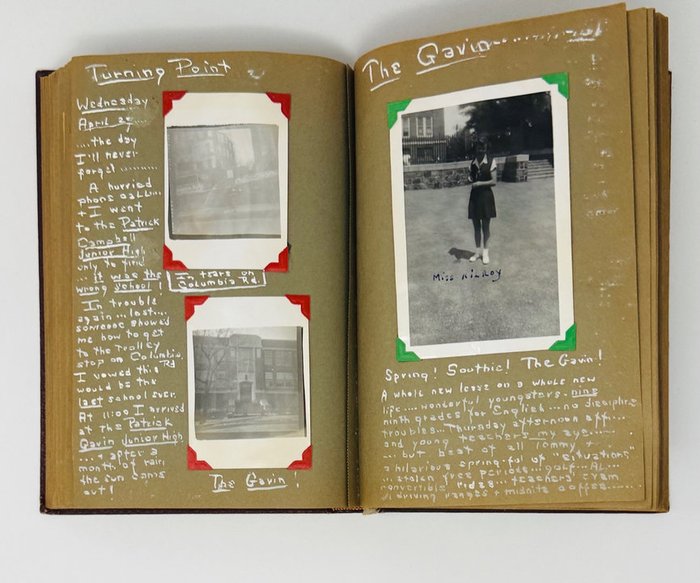 Turning Point
Wednesday
April 25....
...the day
I'll never
forget........
A hurried
phone call....
+ I went
to the Patrick
Campbell
Junior High
only to find
...it was the
wrong school!
In trouble
again...lost...
someone showed
me how to get
to the trolley
stop on Columbia Rd
I vowed this
would be the
last school ever.
At 11:00 I arrived
at the Patrick
Gavin Junior High
....+ after a
month of rain
the sun came
out!
In tears on
Columbia Rd.
The Gavin!
The Gavin
Miss Kilroy
Spring! Southie! The Gavin!
A whole new lease on a whole new
life...wonderful youngsters...nine
ninth grades for English...no discipline
troubles...Thursday afternoon off...
and young teachers my age......
...but best of all Tommy +
a hilarious spring full of "situations"
...stolen free periods...golf...AL...
convertible rides...teachers' exam
driving ranges + midnite coffee......